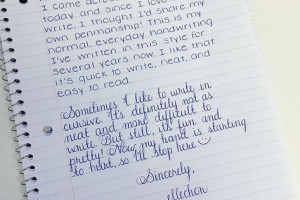 I came across
today and since I love
write, I thought I'd share my
own penmanship! This is my
normal, everyday handwriting.
I've written in this style for
several years now. I like that
it's quick to write, neat, and
easy to read.
Sometimes I like to write in
cursive. It's definitely not as
neat and more difficult to
write. But still, it's fun and
pretty! Now my hand is starting
to hurt, so I'll stop here
Sincerely,